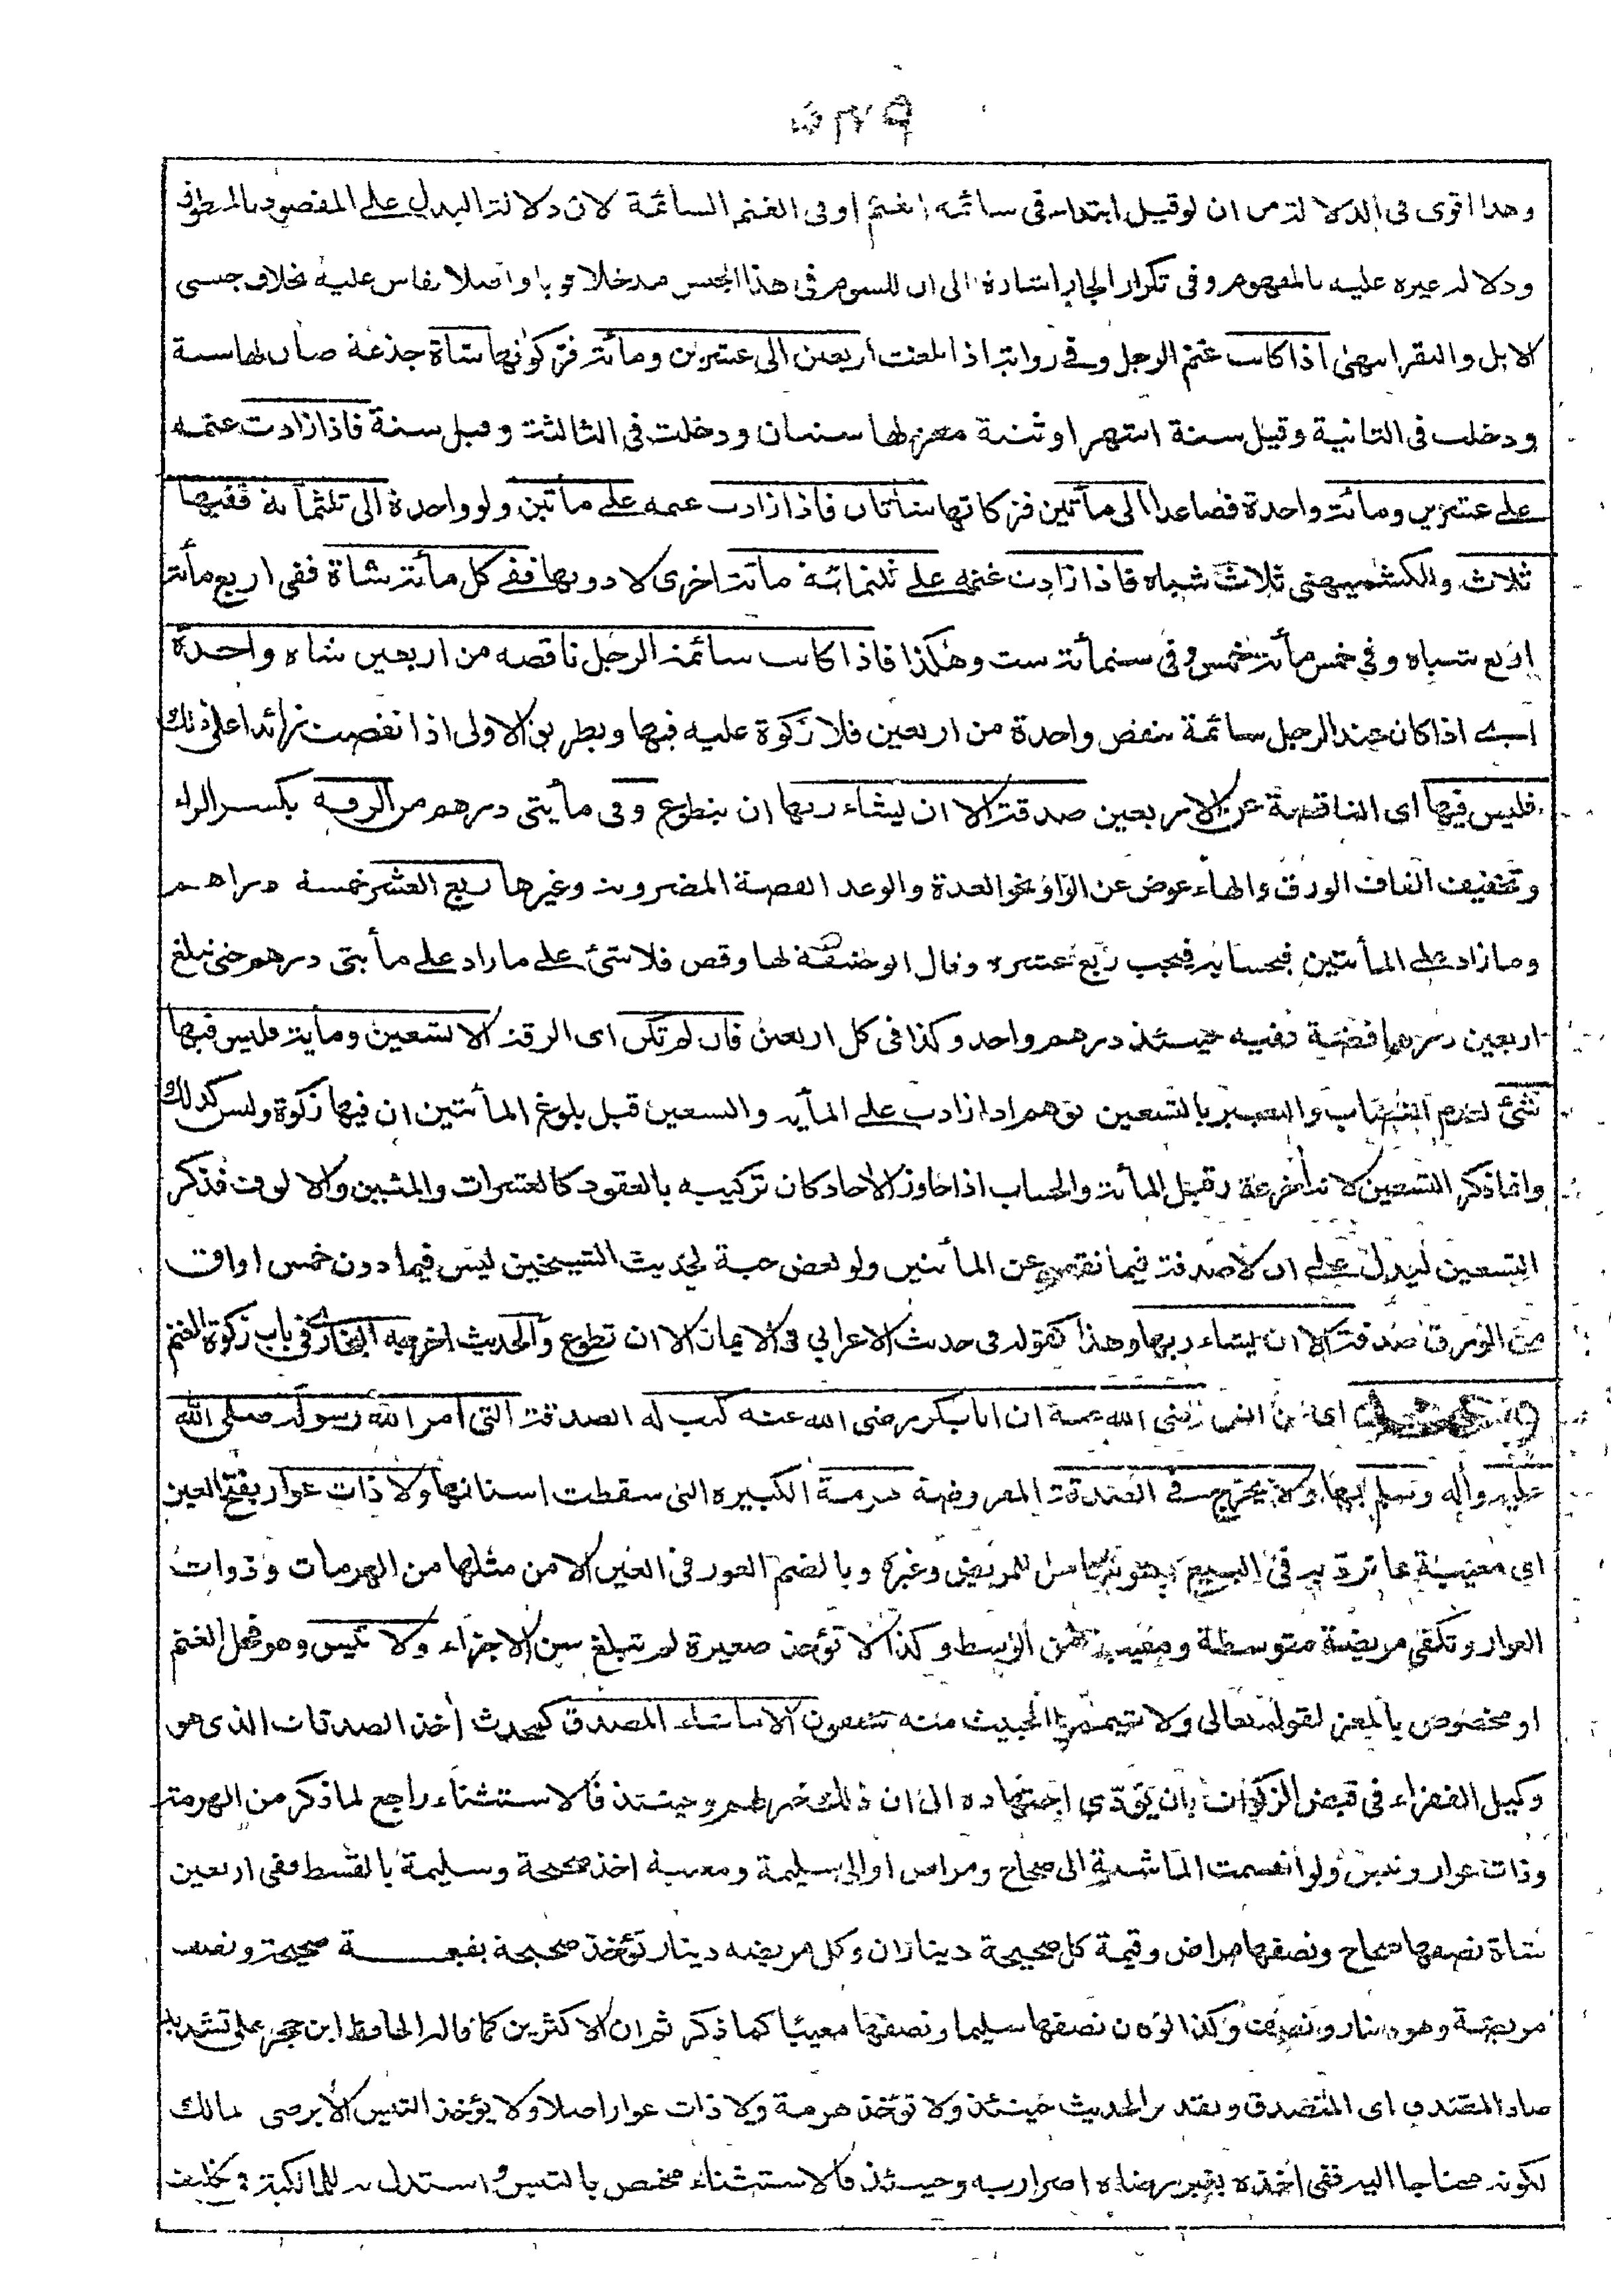 وهذا اقوى فى الدلالة من ان لو قيل ابتداء فى سائمة الغنم او فى الغنم السائمة لان دلالة البدل على المقصود بالمنطوق
ودلالة غيره عليه بالمفهوم وفى تكرار الجار اشارة الى ان للسوم فى هذا الجنس مدخلا قويا واصلا يقاس عليه بخلاف جنسى
الابل والبقر انتهى اذا كانت غنم الرجل وفى رواية اذا بلغت اربعين الى عشرين ومائة فزكوتها شاة جذعة ضأن لها سنة
ودخلت فى الثانية وقيل ستة اشهر او ثنية معز لها سنتان ودخلت فى الثالثة وقيل سنة فاذا زادت غنمه
على عشرين ومائة واحدة فصاعدا الى مأتين فزكاتها شاتان فاذا زادت غنمه على مأتين ولو واحدة الى ثلثمائة ففيها
ثلاث وللكشميهنى ثلاث شياه فاذا زادت غنمه على ثلثمائة مائة اخرى لا دونها ففى كل مأة شاة ففى اربع مأة
اربع شياه وفى خمس مأة خمس وفى ستمأة ست وهكذا فاذا كانت سائمة الرجل ناقصة من اربعين شاة واحدة
اى اذا كان عند الرجل سائمة تنقص واحدة من اربعين فلا زكوة عليه فيها وبطريق الاولى اذا نقصت زائدا على ذلك
فليس فيها اى الناقصة عن الاربعين صدقة الا ان يشاء ربها ان يتطوع وفى مأيتى درهم من الرقة بكسر الراء
وتخفيف القاف الورق والهاء عوض عن الواو نحو العدة والوعد الفضة المضروبة وغيرها ربع العشر خمسة دراهم
وما زاد على المأتين فبحسابه فيجب ربع عشره وقال ابو حنيفة لها وقص فلا شئ على ما زاد على مأيتى درهم حتى تبلغ
اربعين درهما فضة ففيه حينئذ درهم واحد وكذا فى كل اربعين فان لم تكن اى الرقة الا تسعين ومأية فليس فيها
شئ لعدم النصاب والتعبير بالتسعين يوهم اذا زادت على المأية والتسعين قبل بلوغ المأتين ان فيها زكوة وليس كذلك
وانما ذكر التسعين لانه أخر عقد قبل المأة والحساب اذا جاوز الاحاد كان تركيبه بالعقود كالعشرات والمئين والالوف فذكر
التسعين ليدل على ان لا صدقة فيما نقص عن المأتين ولو بعض حبة لحديث الشيخين ليس فيما دون خمس اواق
من الورق صدقة الا ان يشاء ربها وهذا كقوله فى حديث الاعرابي فى الايمان الا ان تطوع والحديث اخرجه البخارى فى باب زكوة الغنم
اى عن انس رضى الله عنه ان ابا بكر رضى الله عنه كتب له الصدقة التى امر الله رسوله صلى الله
عليه وأله وسلم بها ولا يخرج فى الصدقة المفروضة هرمة الكبيرة التى سقطت اسنانها ولا ذات عوار بفتح العين
اى معيبة بما ترد به فى البيع وهو شامل للمريض وغيره وبالضم العور فى العين الا من مثلها من الهرمات وذوات
العوار وتكفى مريضة متوسطة ومعيبة من الوسط وكذا لا تؤخذ صغيرة لم تبلغ سن الاجزاء ولا تيس وهو فحل الغنم
او مخصوص بالمعز لقوله تعالى ولا تيمموا الخبيث منه تنفقون الا ما شاء المصدق كمحدث أخذ الصدقات الذى هو
وكيل الفقراء فى قبض الزكوات بان يؤدى اجتهاده الى ان ذلك خير لهم وحينئذ فالاستثناء راجع لما ذكر من الهرمة
وذات عوار وتيس ولو انقسمت الماشية الى صحاح ومراض او الى سليمة ومعيبة اخذ صحيحة وسليمة بالقسط ففى اربعين
شاة نصفها صحاح ونصفها مراض وقيمة كل صحيحة ديناران وكل مريضة دينار تؤخذ صحيحة بقيمة صحيحة ونصف
مريضة وهو دينار ونصف وكذا لو كان نصفها سليما ونصفها معيبا كما ذكر ثم ان الاكثرين كما قاله الحافظ ابن حجر على تشديد
صاد المصدق اى المتصدق وتقدير الحديث حينئذ ولا تؤخذ هرمة ولا ذات عوار اصلا ولا يؤخذ التيس الا برضى مالك
لكونه محتاجا اليه ففى اخذه بغير رضاه اضرار به وحينئذ فالاستثناء مختص بالتيس واستدل به للمالكية